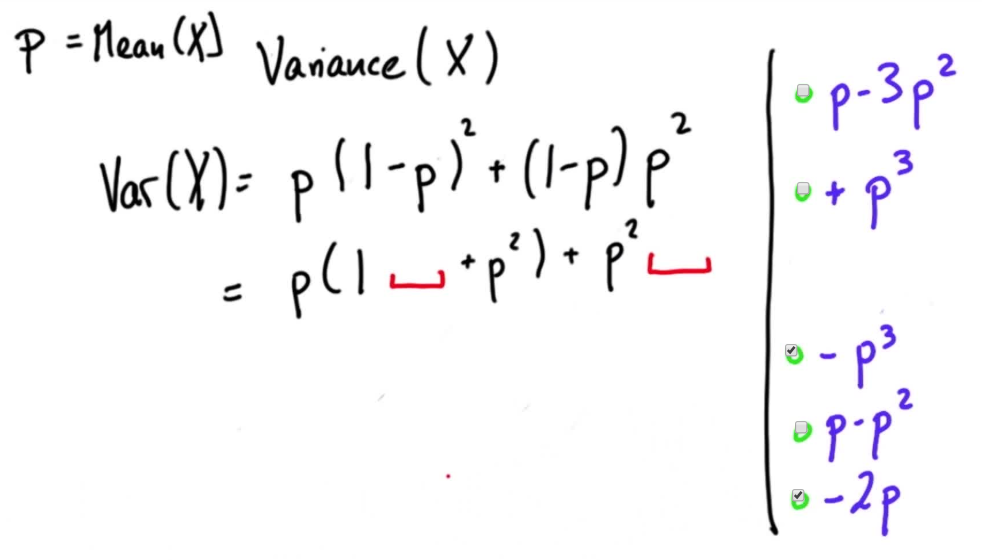 p = Mean(X) Variance(X)
Var(X) = p(1-p)² + (1-p)p²
= p(1 + p²) + p²
p-3p²
+p³
-p³
p-p²
-2p